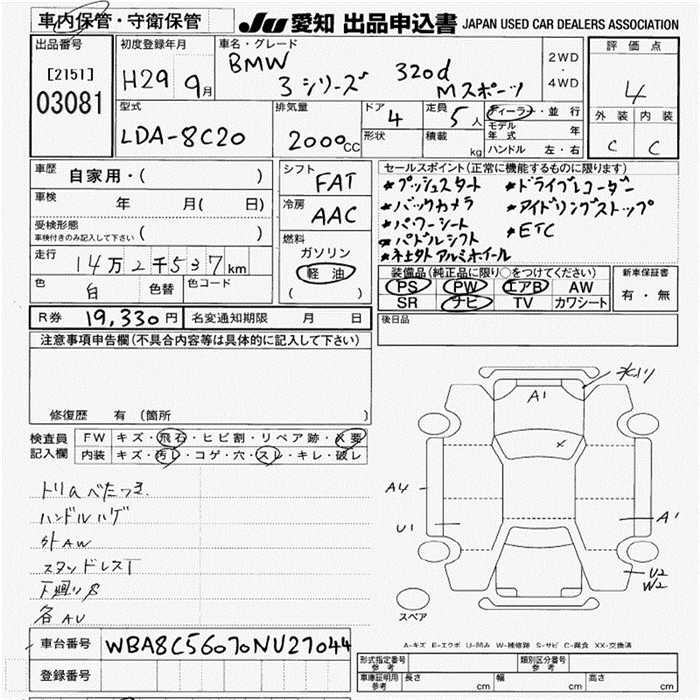 車内保管・守衛保管
JU 愛知 出品申込書 JAPAN USED CAR DEALERS ASSOCIATION
出品番号
[2151]
03081
初度登録年月
H29 9月
車名・グレード
BMW 3シリーズ 320d Mスポーツ
2WD
・
4WD
評価点
4
外装 内装
C C
型式
LDA-8C20
排気量
2000cc
ドア 4
形状
定員 5人
積載 kg
ディーラー・並行
モデル年式 年
ハンドル 左・右
車歴
自家用・( )
車検 年 月( 日)
受検形態
車検付きのみ記入して下さい ( )
走行 14万2千537km
色 白 色替 色コード
シフト
FAT
冷房
AAC
燃料
ガソリン
軽油
( )
セールスポイント(正常に機能するものに限ります)
*プッシュスタート *ドライブレコーダー
*バックカメラ *アイドリングストップ
*パワーシート *ETC
*パドルシフト
*社外アルミホイール
装備品(純正品に限り○をつけてください)
PS PW エアB AW
SR ナビ TV カワシート
新車保証書
有・無
R券 19,330円 名変通知期限 月 日
後日品
注意事項申告欄(不具合内容等は具体的に記入して下さい)
修復歴 有 (箇所 )
検査員
記入欄
FW キズ・飛石・ヒビ割・リペア跡・X要
内装 キズ・汚レ・コゲ・穴・スレ・キレ・破レ
トリムべたつき
ハンドルハゲ
外AW
スタッドレスT
下廻りS
各AU
A1
X
A4
U1
A1
U2
W2
スペア
A-キズ E-エクボ U-凹み W-補修跡 S-サビ C-腐食 XX-交換済
車台番号 WBA8C56070NU27044
登録番号
形式指定番号
参考
類別区分番号
参考
車庫証明用
参考
長さ cm 幅 cm 高さ cm